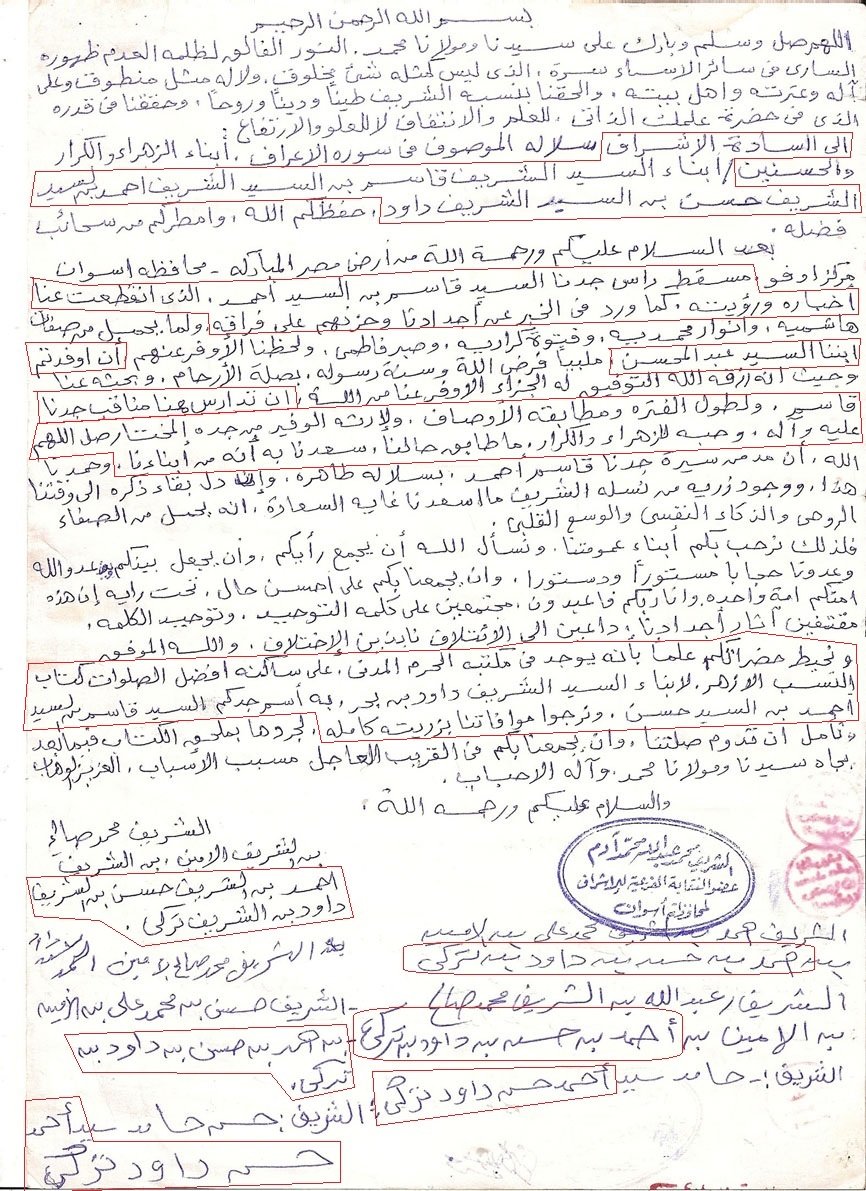 بسم الله الرحمن الرحيم
اللهم صل وسلم وبارك على سيدنا ومولانا محمد. النور الفالق لظلمه العدم ظهوره
السارى فى سائر الاسماء سره، الذى ليس كمثله شئ مخلوق، ولاله مثل منطوق وعلى
آله وعترته واهل بيته، والحقنا بنسبه الشريف طيناً وديناً وروحاً، وحققنا فى قدره
الذى فى حضرة علمك الذاتى، للعلم والانتفاق لا للعلو والارتفاع:
الى السادة الاشراف سلاله الموصوف فى سوره الاعراف، أبناء الزهراء والكرار
والحسنين/ ابناء السيد الشريف قاسم بن السيد الشريف احمد بن السيد
الشريف حسن بن السيد الشريف داود، حفظكم الله، وامطركم من سحائب
فضله.
بعد السلام عليكم ورحمة الله من أرض مصر المباركه - محافظه اسوان
مركز ادفو. مسقط راس جدنا السيد قاسم بن السيد أحمد، الذى انقطعت عنا
أخباره ورؤيته، كما ورد فى الخبر عن أجدادنا وحزنهم على فراقه. ولما يحمل من صفات
هاشميه، وانوار محمديه، وفتوة كراريه، وصبر فاطمى، ولحظنا الأوفر عنهم أن اوفدتم
ابننا السيد عبد المحسن، ملبياً فرض الله وسنة رسوله، بصلة الأرحام، وبحثه عنا
وحيث انه رزقه الله التوفيق له الجزاء الاوفر عنا من الله، ان تدارس هنا مناقب جدنا
قاسم، ولطول الفتره ومطابقه الأوصاف، ولإرثه الوفير من جده المختار صل اللهم
عليه وآله، وحبه للزهراء والكرار، ما طابق حالنا، سعدنا به أنه من أبناءنا، وحمدنا
الله، أن مد من سيرة جدنا قاسم أحمد، بسلاله طاهره، وإن دل بقاء ذكره الى وقتنا
هذا، ووجود زريه من نسله الشريف ما اسعدنا غايه السعادة، انه يحمل من الصفاء
الروحى والذكاء النفسى والوسع القلبى.
فلذلك نرحب بكم أبناء عمومتنا، ونسأل الله أن يجمع رأيكم، وان يجعل بينكم وعدو الله
وعدونا حجابا مستوراً ودستورا، وان يجمعنا بكم على احسن حال، تحت رايه إن هذه
امتكم امة واحده وانا ربكم فاعبدون، مجتمعين على كلمه التوحيد، وتوحيد الكلمه،
مقتفين آثار أجدادنا، داعين الى الائتلاف نابذين الإختلاف، والله الموفق
ونحيط حضراتكم علما بأنه يوجد فى مكتبه الحرم المدنى، على ساكنه افضل الصلوات كتاب
النسب الازهر، لابناء السيد الشريف داود بن بحر، به أسم جدكم السيد قاسم بن السيد
احمد بن السيد حسن، ونرجوا موافاتنا بزريته كامله، لجردها بملحق الكتاب فيما بعد
ونامل ان تدوم صلتنا، وان يجمعنا بكم فى القريب العاجل مسبب الأسباب، العزيز الوهاب
بجاه سيدنا ومولانا محمد، وآله الاحباب.
والسلام عليكم ورحمه الله.
الشريف محمد صالح
بن الشريف الامين، بن الشريف
احمد بن الشريف حسن بن الشريف
داود بن الشريف تركى.
الشريف محمد صالح الامين احمد
الشريف محمد عبد الله محمد آدم
عضو النقابة الفرعية للاشراف
لمحافظة أسوان
الشريف احمد بن الشريف محمد على بن الامين
بن احمد بن حسن بن داود بن تركى
الشريف / عبد الله بن الشريف محمد صالح
بن الامين بن أحمد بن حسن بن داود بن تركى
- الشريف حسن بن محمد على بن الامين
بن احمد بن حسن بن داود بن
تركى.
الشريف:- حامد سيد أحمد حسن داود تركى
الشريف: حسن حامد سيد أحمد
حسن داود تركى